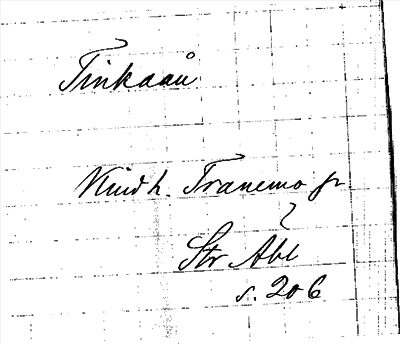 Tinkaån
Kind h. Tranemo sn
?
Str Abl
s. 206